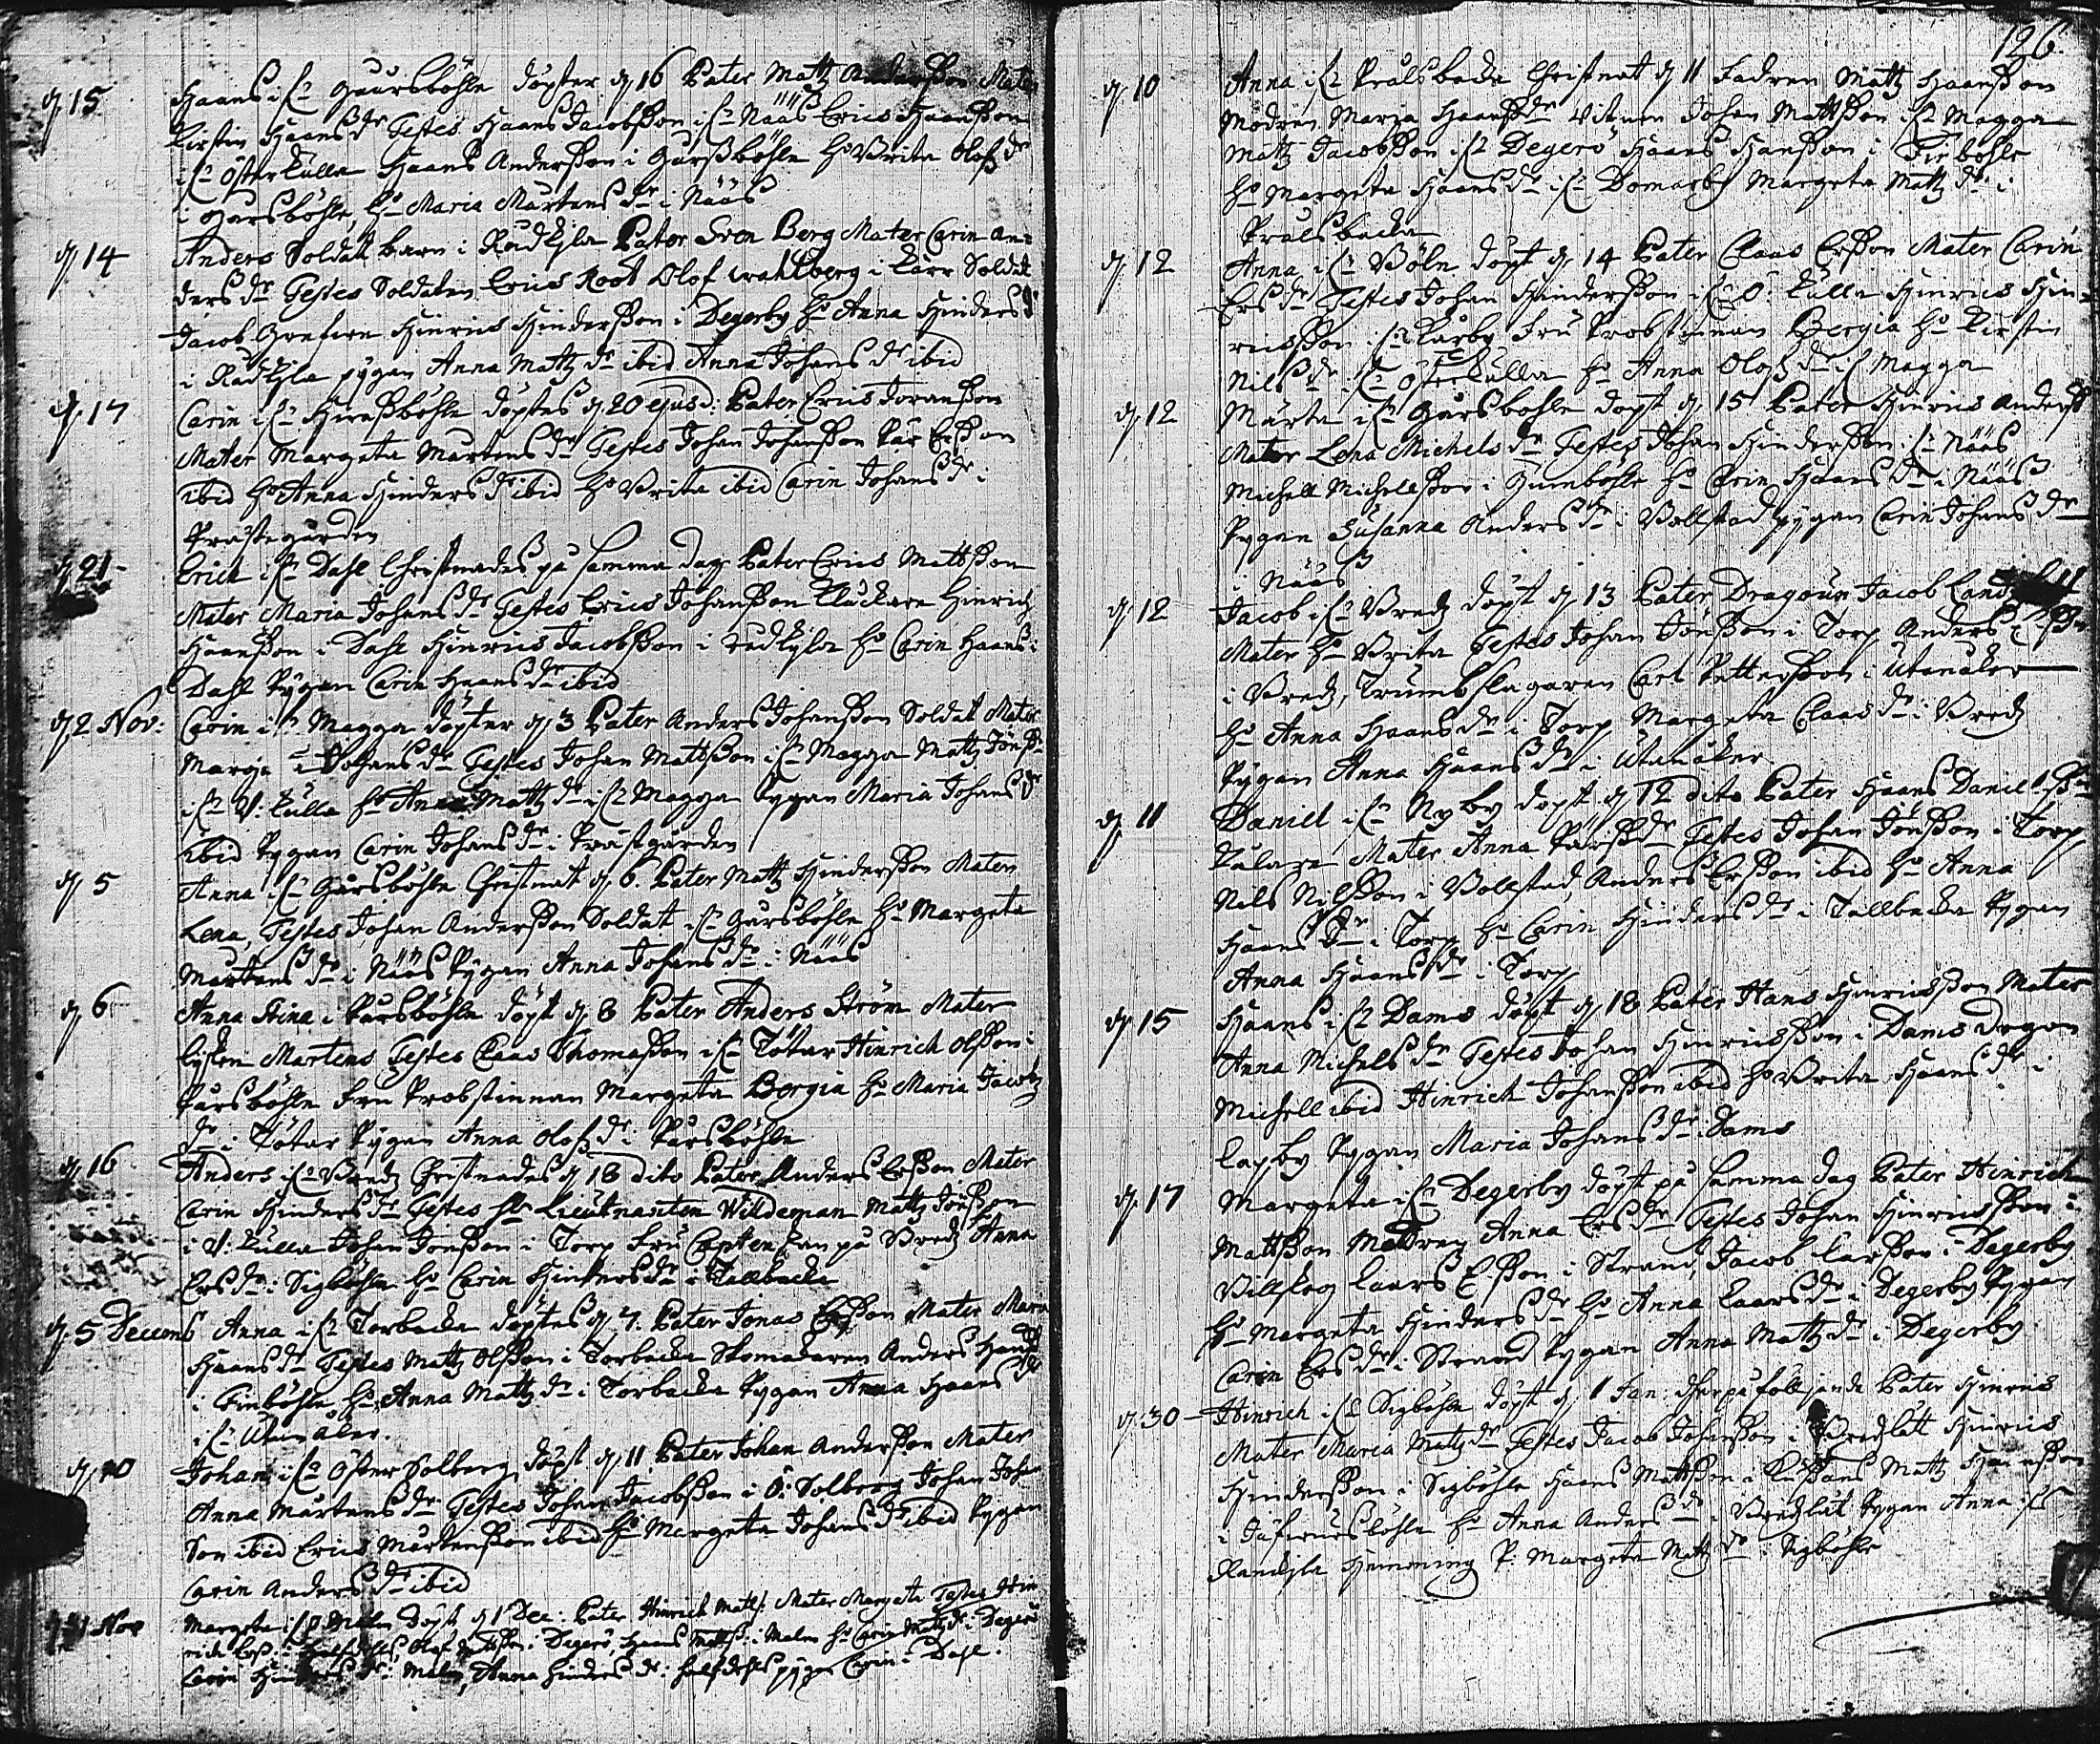 d. 15 Haans i f: Gaursböhle döpter d 16 Pater Mattz Andersson Mater
Kirstin Haansdr Testes Haans Jacobsson i f: Nääs Erics Haansson
i f: Österkulla Haans Andersson i Garsböhle H: Brita Olofsdr
i Garsböhle, H: Maria Mårtensdr i Nääs
d. 14 Anders Soldatt barn i Rådkyla Pater Sven Berg Mater Carin An=
dersdr Testes Soldaten Erics Root Olof Wahlberg i Kärr Soldat
Jacob Hinrics Hindersson i Degerby H: Anna Hindersdr
i Rådkyla pygan Anna Mattzdr ibid Anna Johansdr ibid
d. 17 Carin i f: döptes d 20 ejusd: Pater Erics Joransson
Mater Margeta Mårtensdr Testes Johan Johansson Pär Ersson
ibid H: Anna Hindersdr ibid H: Brita ibid Carin Johansdr i
Prästegården
d. 21. Erich i f: Dahl Christnades på samma dag Pater Erics Mattsson
Mater Maria Johansdr Testes Erics Johansson Kluckare Hinrich
Haansson i Dahl Hinrics Jacobsson i Rudkyla H: Carin Haans i
Dahl Pygan Carin Haansdr ibid
d. 2 Nov: Carin i f: Magga döpter d 3 Pater Anders Johansson Soldat Mater
Margeta Johansdr Testes Johan Mattsson i f: Magga Mattz Jönss:
i f: V: Kulla H: Anna Mattzdr i f: Magga Pygan Maria Johansdr
ibid Pygan Carin Johansdr i Prästgården
d. 5 Anna i f: Garsböhle Christnat d 6. Pater Mattz Hindersson Mater
Lena, Testes Johan Andersson Soldat i f: Garsböhle H: Margeta
Mårtensdr i Nääs Pygan Anna Johansdr i Nääs
d. 6 Anna Stina i Parsböhle döpt d 8 Pater Anders Ström Mater
Lisken Martens Testes Claas Thomasson i f: Tötar Hinrich Olsson i
Parsböhle Fru Probstinnan Margeta Bergia H: Maria Jacobz
dr i Tötar Pygan Anna Olofsdr i Parsböhle
d. 16 Anders i f: Bredz Christnades d 18 dito Pater Anders Ersson Mater
Carin Hindersdr Testes Hr Lieutnanten Willdeman Mattz Jönsson
i V: Kulla Johan Jonsson i Torp Fru Capten på Bredz Anna
Ersdr i Sigböhle H: Carin Hindersdr i Tallbacka
d. 5 Decemb Anna i f: Torbacka döptes d 7. Pater Jonas Ersson Mater Maria
Haansdr Testes Mattz Olsson i Torbacka Skomakaren Anders Hanss
i Finböhle H: Anna Mattzdr i Torbacka Pygan Anna Haansdr
i f: Utanåker.
d. 10 Johan i f: Öster Solberg döpt d 11 Pater Johan Andersson Mater
Anna Mårtensdr Testes Johan Jacobsson i Ö: Solberg Johan Johan
Son ibid Erics Mårtensson ibid H: Margeta Johansdr ibid Pygan
Carin Andersdr ibid
Nov Margeta i f: Malm döpt d 1 Dec: Pater Hinrich Matts: Mater Margeta Testes Hin
rich Ers: i Olof i Degerö, Haans Matts: i Malm H: Carin Mattzdr i Degerö
Carin i Malm, Anna Hindersdr i pygan Carin i Dahl.
126.
d. 10 Anna i f: Prålsbacka Christnat d 11 Fadren Mattz Haansson
Modren Marza Haansdr Vitnen Johan Mattsson i f: Magga
Mattz Jacobsson i f: Degerö Haans Hansson i Finböhle
H: Margeta Haansdr i f: Domarby Margeta Mattzdr i
Prålsbacka
d. 12 Anna i f: Böle döpt d 14 Pater Claas Ersson Mater Carin
Ersdr Testes Johan Hindersson i f: Ö: Kulla Hinrics Hin=
ricsson i f: Kårby Fru Probstinnan Bergia H: Kirstin
Nilsdr i f: Österkulla H: Anna Olofsdr i f: Magga
d. 12 Märta i f: Garsböhle döpt d. 15 Pater Hinrics Anderss
Mater Lena Michelsdr Testes Johan Hindersson i f: Nääs
Michell Michellsson i Gumböhle H: Carin Haansdr i Nääs
Pygan Susanna Andersdr i Bollstad pygan Carin Johansdr
i Nääs
d. 12 Jacob i f: Bredz döpt d 13 Pater Dragoun Jacob Landz
Mater H: Brita Testes Johan Jönsson i Torp Anders Ersson
i Bredz, Trumbslagaren Carl Pettersson i Utanåker
H: Anna Haansdr i Torp Margeta Claasdr i Bredz
Pygan Anna Haansdr i Utanåker
d. 11 Daniel i f: Nyby döpt d 12 dito Pater Haans Danielss:
Mater Anna Pärsdr Testes Johan Jönsson i Torp
Nils Nilsson i Bollstad, Anders Ersson ibid H: Anna
Haansdr i Torp H: Carin Hindersdr i Tallbacka Pygan
Anna Haansdr i Torp
d. 15 Haans i f: Dams döpt d 18 Pater Hans Hinricsson Mater
Anna Michelsdr Testes Johan Hinricsson i Dams
Michell ibid Hinrich Johansson ibid H: Brita Haansdr i
Lapby Pygan Maria Johansdr i Dams
d. 17 Margeta i f: Degerby döpt på samma dag Pater Hinrich
Mattsson Modren Anna Ersdr Testes Johan Hinricsson i
Billskog Laars Ersson i Strand, Jacob Larsson i Degerby
H: Margeta Hindersdr H: Anna Laarsdr i Degerby Pygan
Carin Ersdr i Strand Pygan Anna Mattzdr i Degerby
d. 30 Hinrich i f: Sigböhle döpt d 1 Jan: derpåfölljande Pater Hinrics
Mater Maria Matzdr Testes Jacob Johansson i Bredslätt Hinrics
Hindersson i Sigböhle Haans Mattsson i Mattz Haansson
i H: Anna Andersdr i Bredslät Pygan Anna i f:
Hemming P: Margeta Mattzdr i Sigböhle